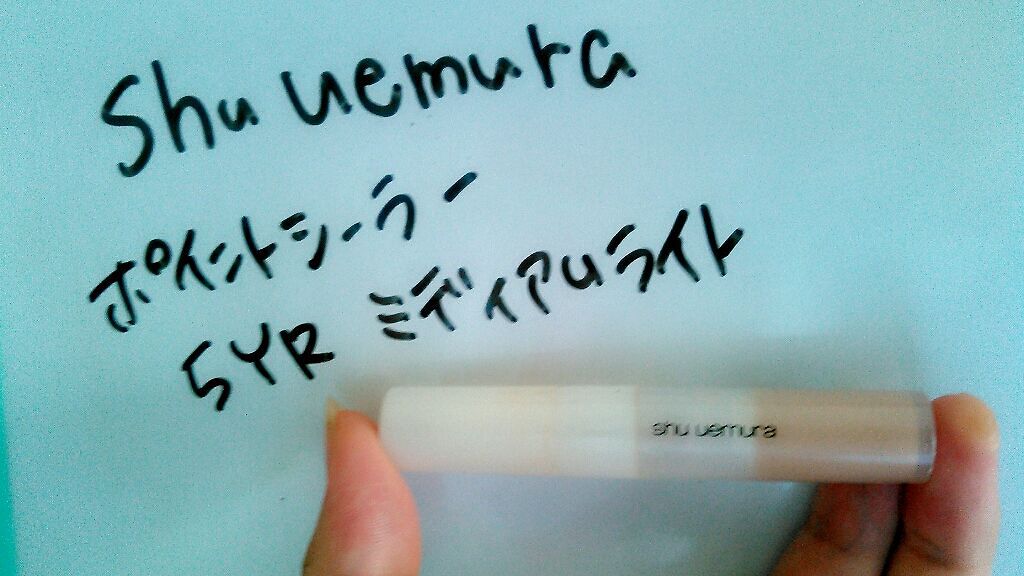 Shu uemura
ポイントシーラー
5YR ミディアムライト
shu uemura